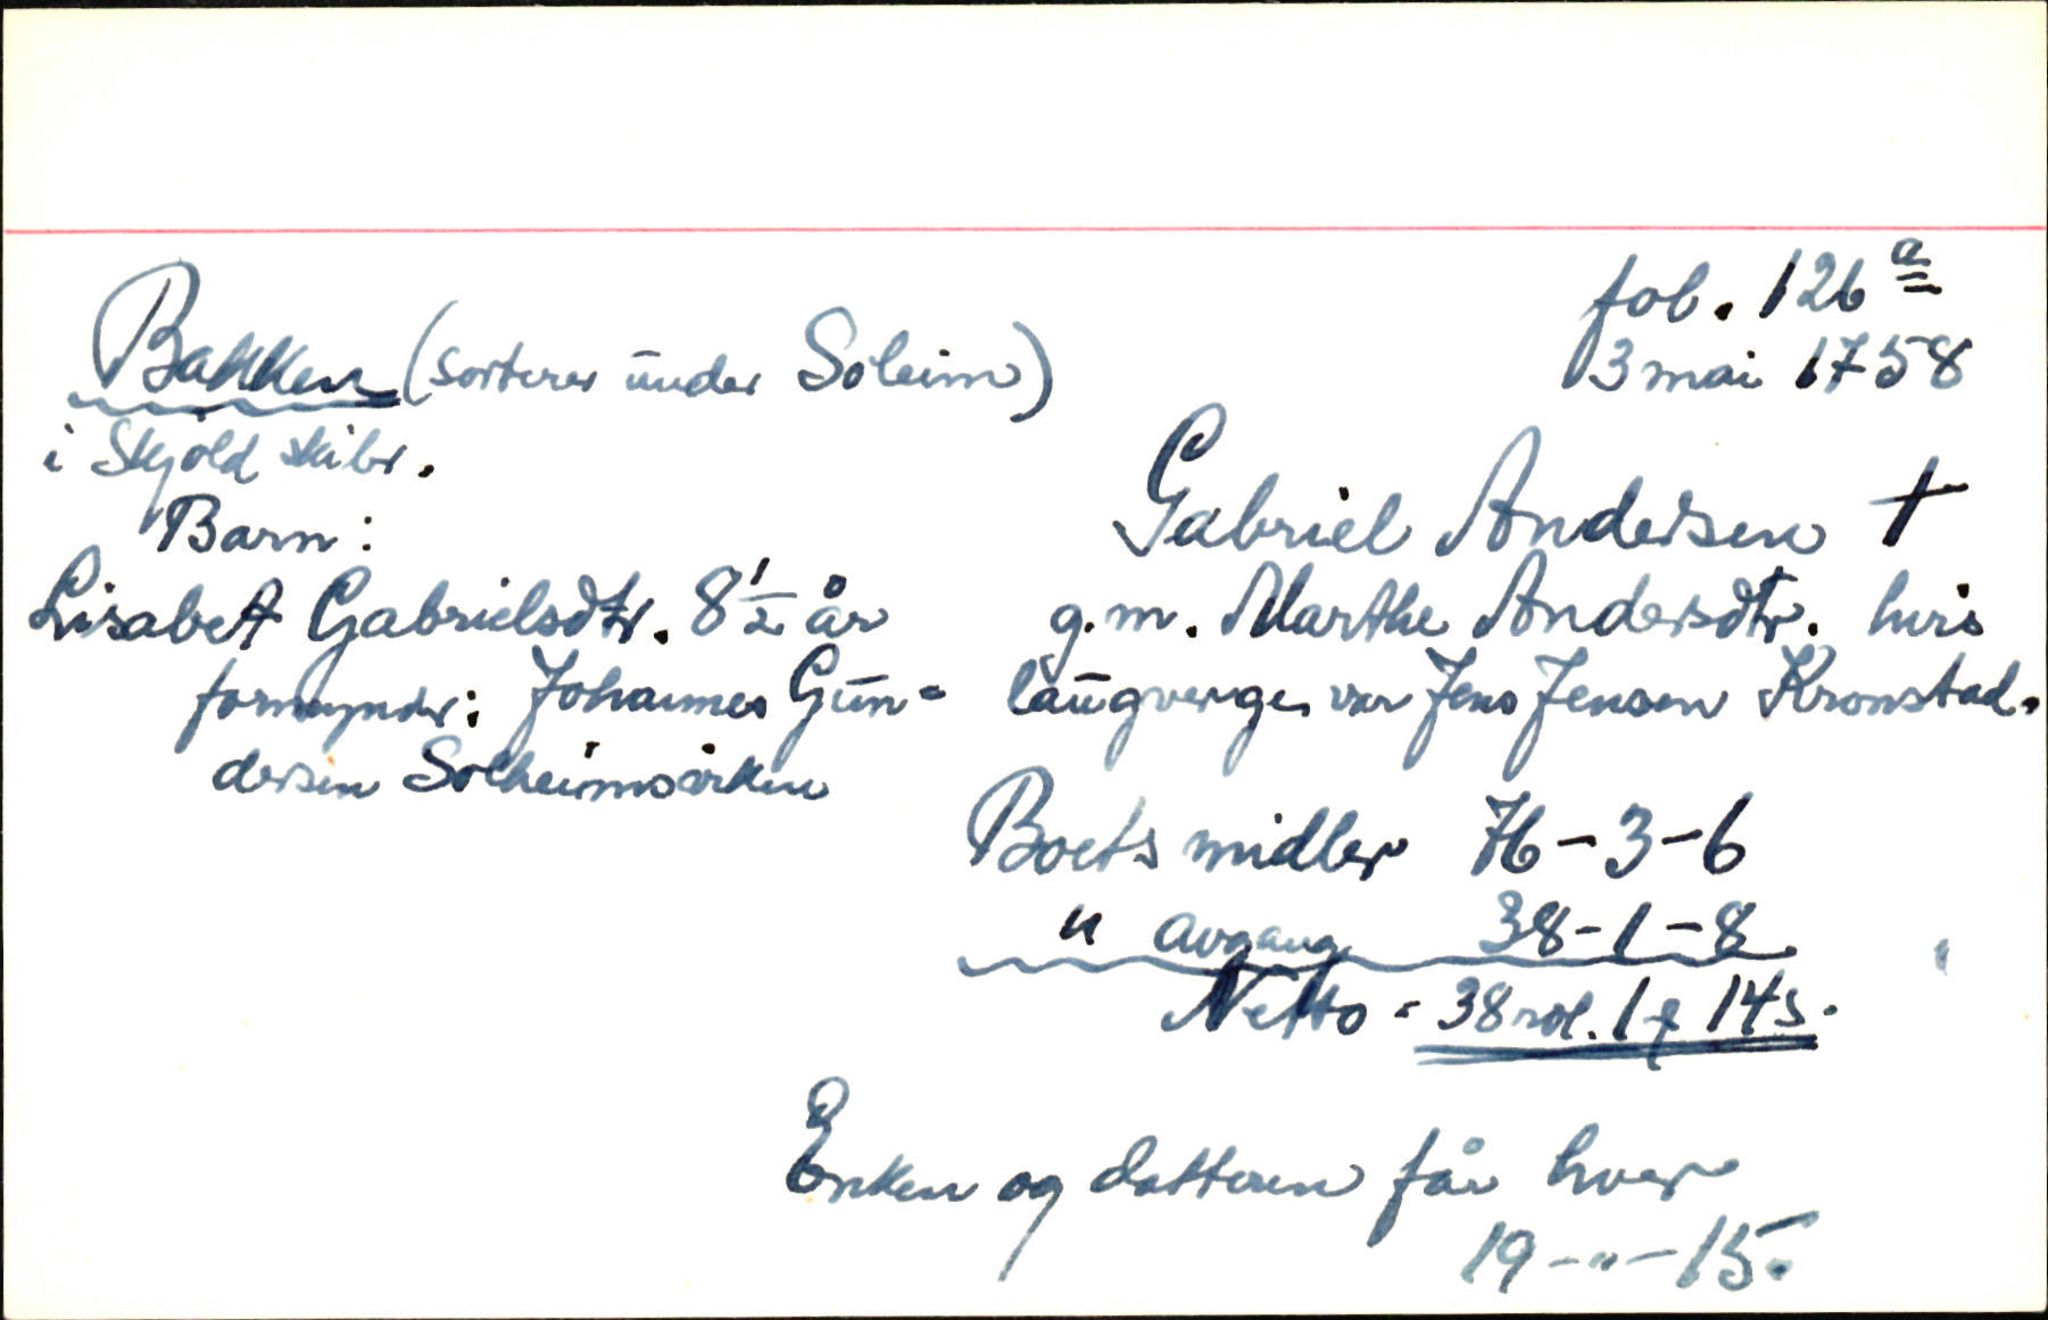 fol. 126 a
3 mai 1758
Bakken (sorterer under Soleim)
i Skjold skibr.
Barn:
Lisabet Gabrielsdtr. 8 1/2 år
formynder: Johannes Gun=
dersen Solheimsviken
Gabriel Andersen †
g.m. Marthe Andersdtr. hvis
laugverge var Jens Jensen Kronstad.
Boets midler 76-3-6
" avgang 38-1-8
Netto = 38 rdl. 1 ƒ 14 s.
Enken og datteren får hver
19-"-15.